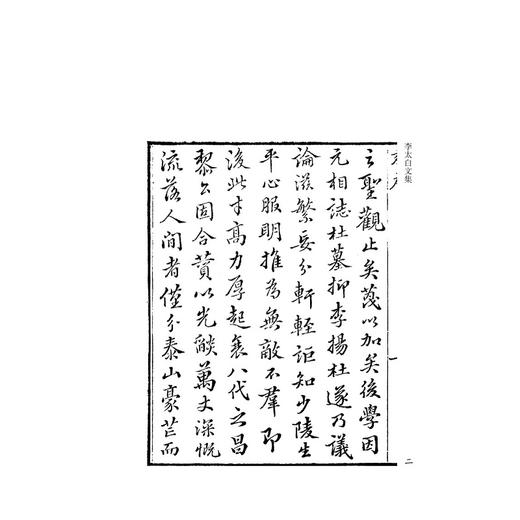 李太白文集
之聖觀止矣蔑以加矣後學因
元相誌杜墓抑李揚杜遂乃議
論滋繁妄分軒輊詎知少陵生
平心服明推為無敵不羣即
後此才高力厚起衰八代之昌
黎公固合贊以光燄萬丈深慨
流落人間者僅分泰山豪芒而
二